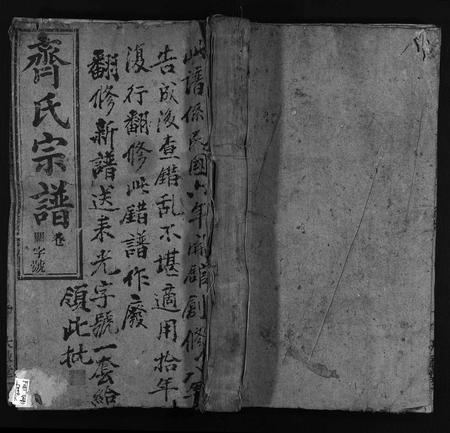 此譜係民國六年開館創修八年
告成後查錯乱不堪適用拾年
復行翻修此錯譜作廢
翻修新譜送来光字號一套給
領此批
齊氏宗譜
卷
關字號